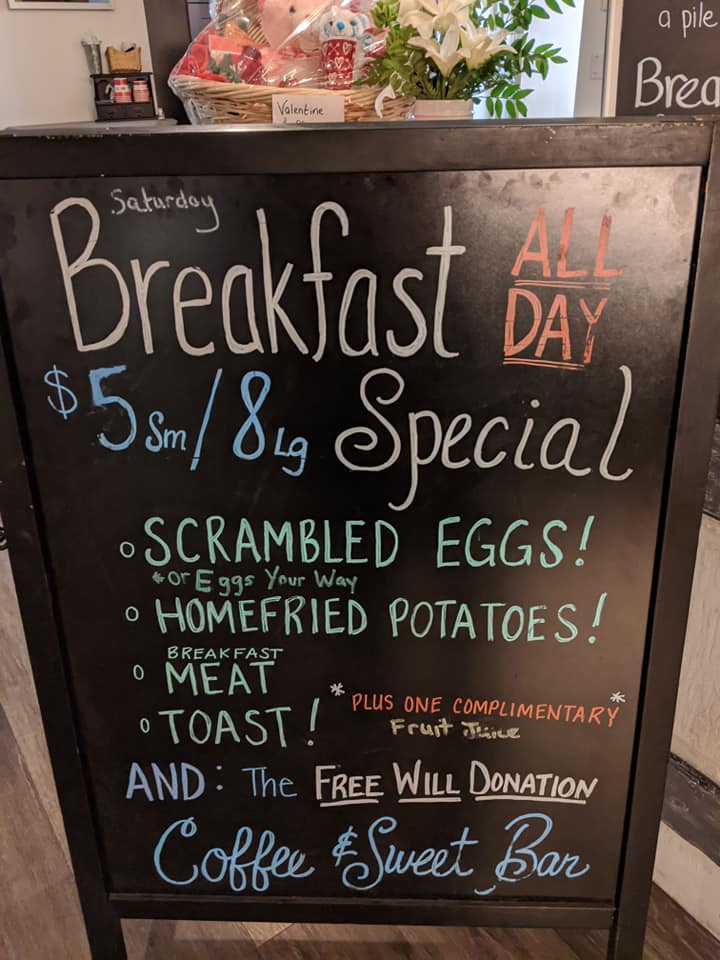 a pile
Brea
Valentine
Saturday
Breakfast ALL DAY
$5 Sm / 8 Lg Special
◦ SCRAMBLED EGGS!
*or Eggs Your Way
◦ HOMEFRIED POTATOES!
◦ BREAKFAST
MEAT
◦ TOAST! *PLUS ONE COMPLIMENTARY*
Fruit Juice
AND: The FREE WILL DONATION
Coffee & Sweet Bar